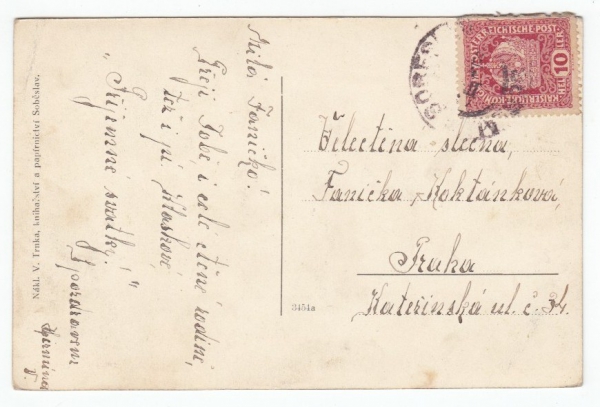 Milá Faničko!
Přeji Tobě, i celé ctěné rodině,
též i pí. Hlaskové,
"Příjemné svátky!"
S pozdravem
Hermína
Nákl. V. Trnka, knihařství a papírnictví Soběslav.
3454a
ÖSTERREICHISCHE POST
10
Velectěná slečna,
Fanička Koktánková,
Praha
Kateřinská ul. č. 34.